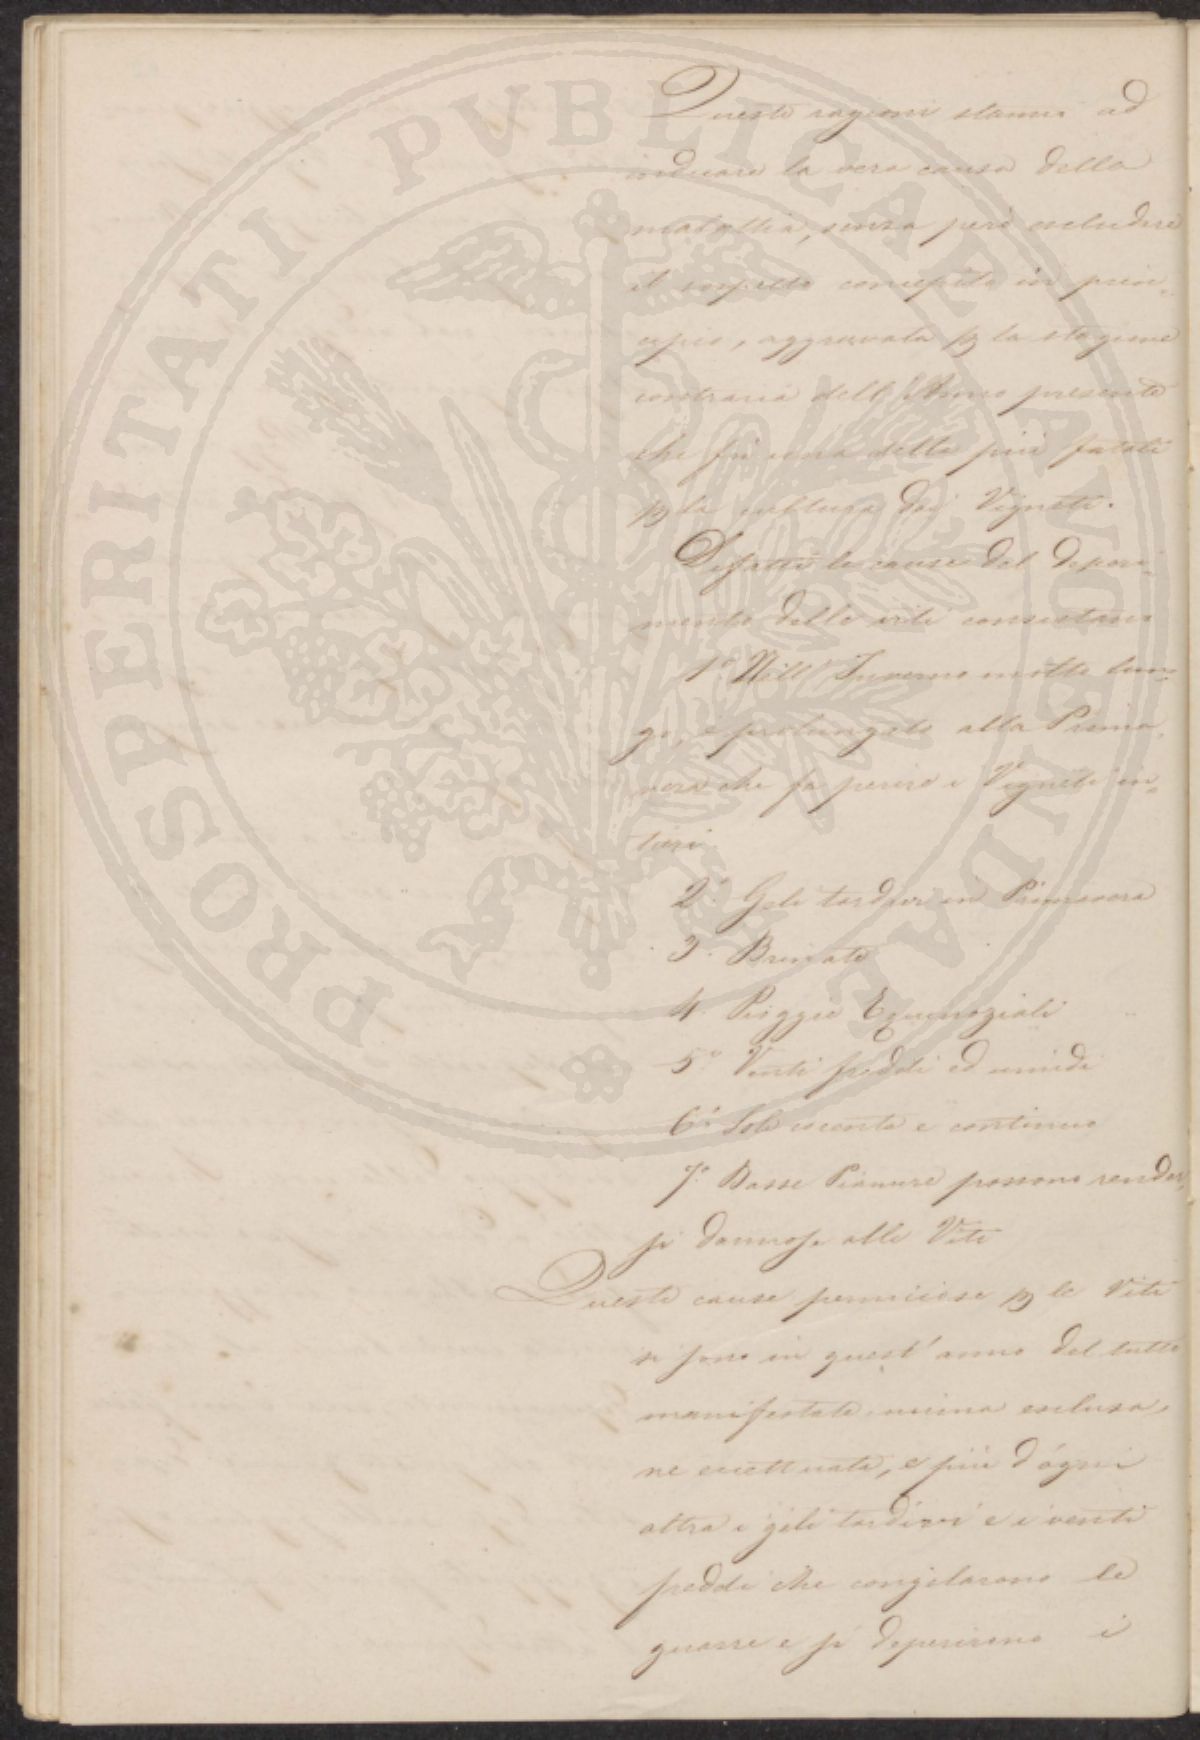 PROSPERITATI PVBLICAE AVGENDAE
Queste ragioni stanno ad
indicare la vera causa della
malattia, senza però escludere
il sospetto concepito in prin-
cipio, aggravata p la stagione
contraria dell'Anno presente
che fù una delle più fatali
p la coltura dei Vigneti.
Difatti le cause del deperi-
mento delle viti consistano
1.° Nell'Inverno molto lun-
go, e prolungato alla Prima-
vera che fa perire i Vigneti in-
tieri.
2.° Geli tardivi in Primavera
3.° Brinate
4. Pioggie Equinoziali
5.° Venti freddi ed umidi
6.° Sole cocente e continuo
7.° Basse Pianure possono render-
si dannose alle Viti
Queste cause perniciose p le Viti
si sono in quest'anno del tutto
manifestate niuna esclusa,
ne eccettuata, e più d'ogni
altra i geli tardivi e i venti
freddi che congelarono le
guasse e si deperirono i